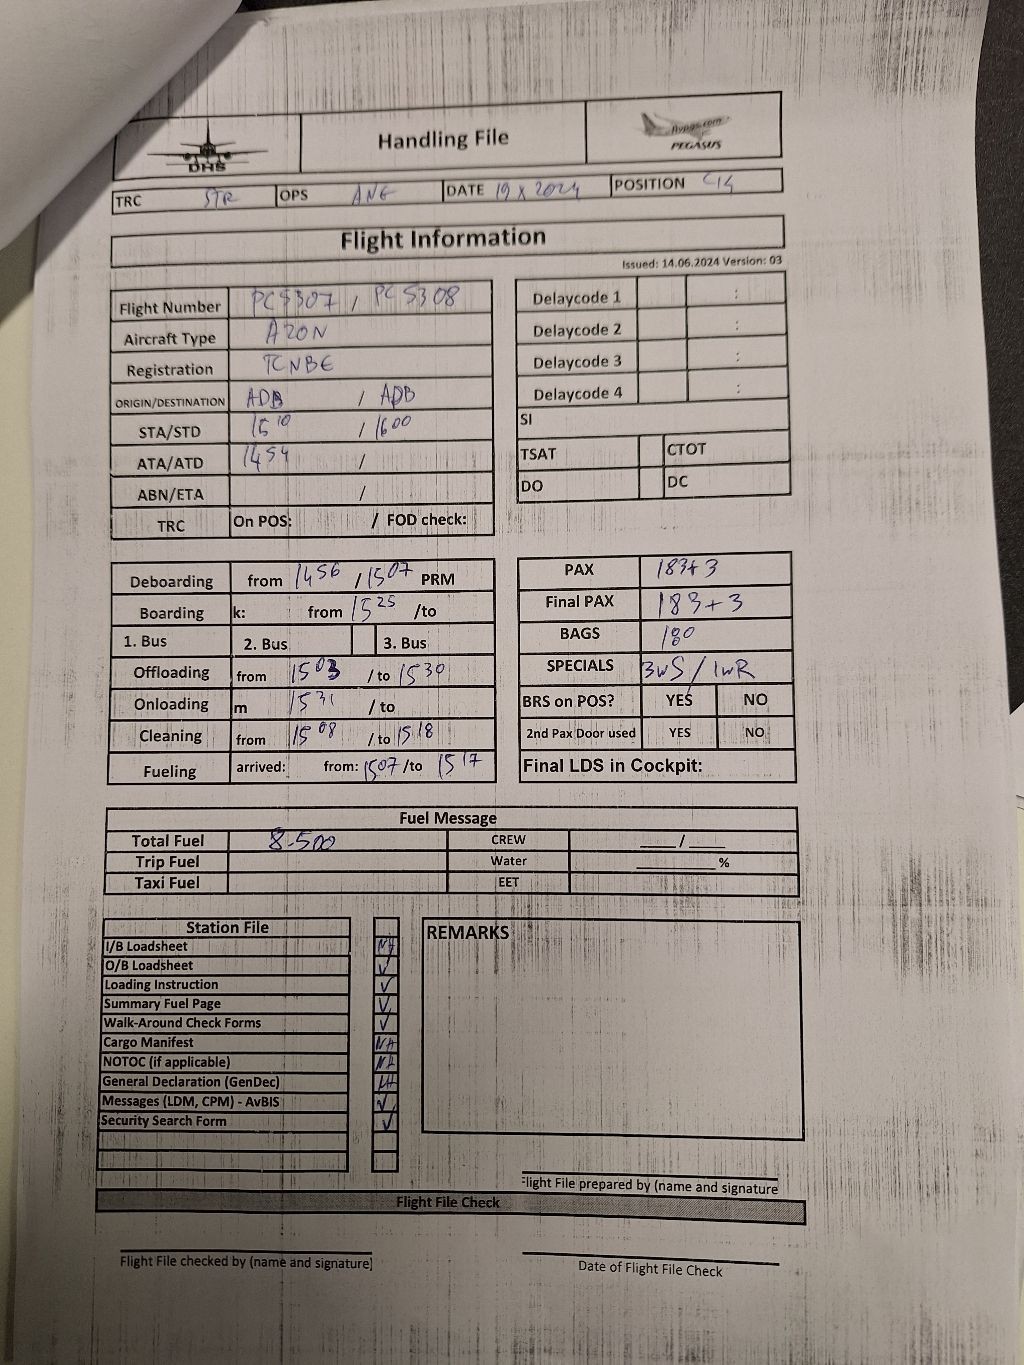 DHS
Handling File
flypgs.com
PEGASUS
TRC STR OPS ANE DATE 19 X 2024 POSITION C14
Flight Information
Issued: 14.06.2024 Version: 03
Flight Number PC5307 / PC5308
Aircraft Type A20N
Registration TCNBE
ORIGIN/DESTINATION ADB / ADB
STA/STD 15 10 / 1600
ATA/ATD 1454 /
ABN/ETA /
TRC On POS: / FOD check:
Delaycode 1 :
Delaycode 2 :
Delaycode 3 :
Delaycode 4 :
SI
TSAT CTOT
DO DC
Deboarding from 1456 / 1507 PRM
Boarding k: from 15 25 /to
1. Bus 2. Bus 3. Bus
Offloading from 15 03 / to 15 30
Onloading m 15 31 / to
Cleaning from 15 08 / to 15 18
Fueling arrived: from: 1507 /to 15 17
PAX 183+3
Final PAX 183+3
BAGS 180
SPECIALS 3WS / 1WR
BRS on POS? YES NO
2nd Pax Door used YES NO
Final LDS in Cockpit:
Fuel Message
Total Fuel 8.500 CREW ____/____
Trip Fuel Water ________%
Taxi Fuel EET
Station File
I/B Loadsheet NA
O/B Loadsheet ✓
Loading Instruction ✓
Summary Fuel Page ✓
Walk-Around Check Forms ✓
Cargo Manifest NA
NOTOC (if applicable) NA
General Declaration (GenDec)
Messages (LDM, CPM) - AvBIS ✓
Security Search Form ✓
REMARKS
Flight File prepared by (name and signature
Flight File Check
Flight File checked by (name and signature)
Date of Flight File Check